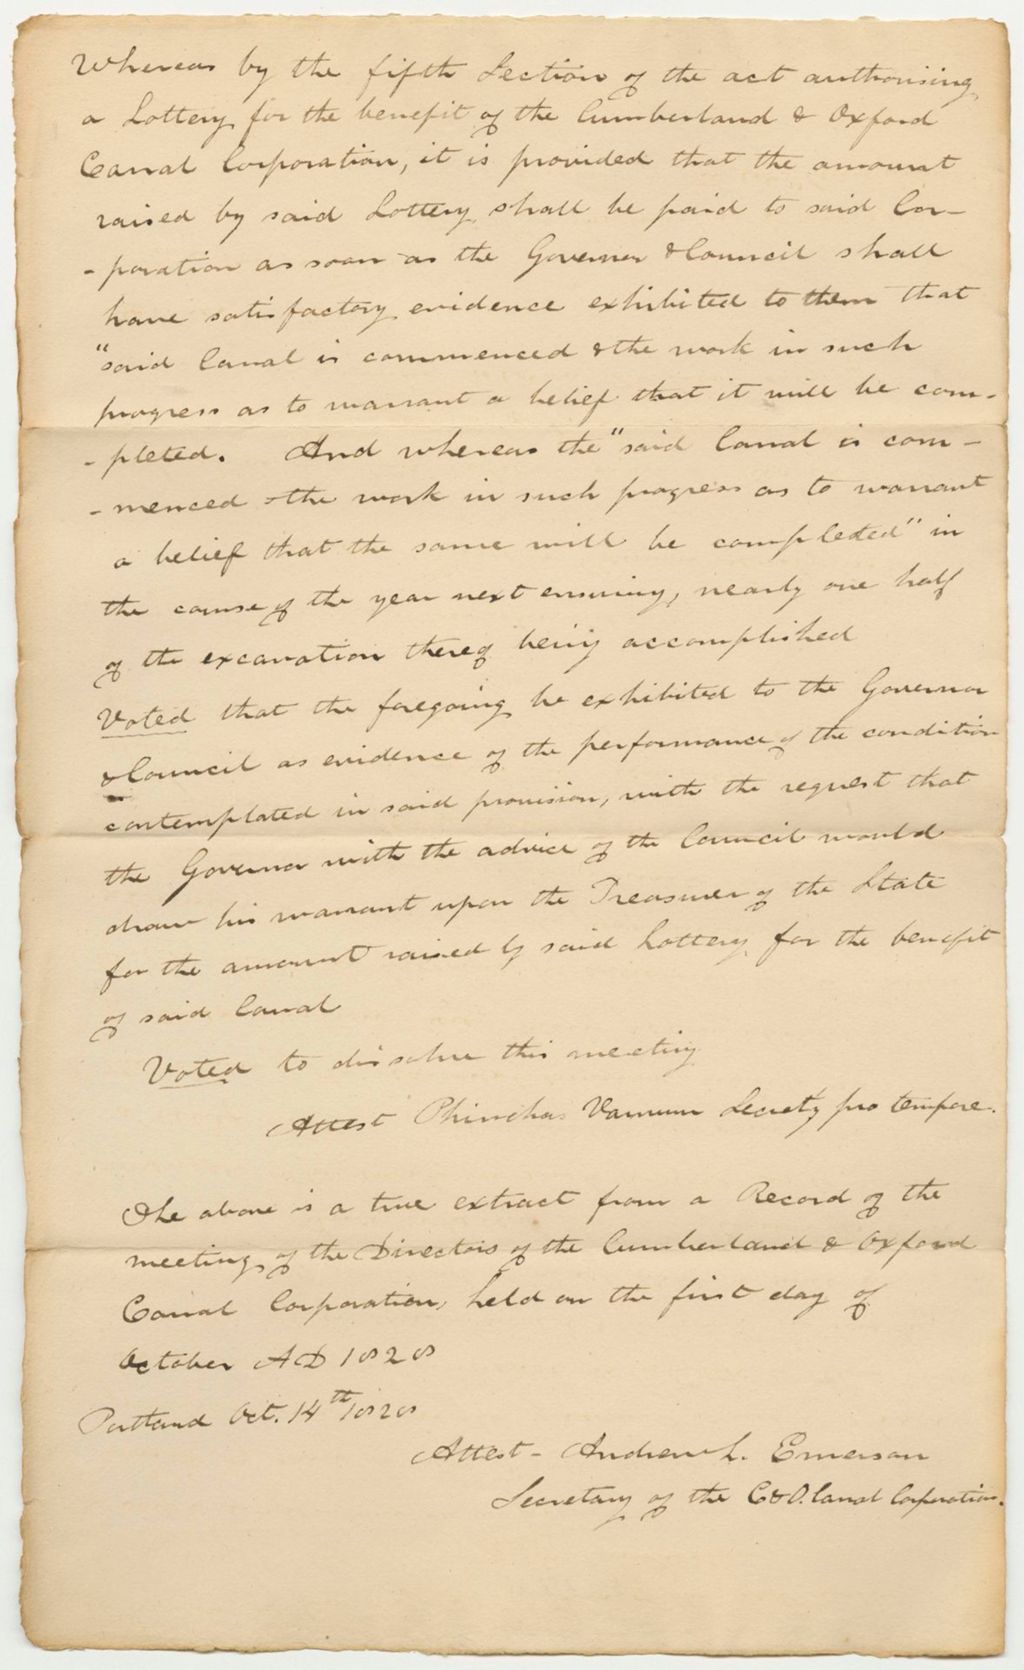 Whereas by the fifth Section of the act authorising
a Lottery for the benefit of the Cumberland & Oxford
Canal Corporation, it is provided that the amount
raised by said Lottery shall be paid to said Cor-
-poration as soon as the Governor & Council shall
have satisfactory evidence exhibited to them that
"said Canal is commenced & the work in such
progress as to warrant a belief that it will be com-
-pleted. And whereas the "said Canal is com-
-menced & the work in such progress as to warrant
a belief that the same will be completed" in
the course of the year next ensuing, nearly one half
of the excavation thereof being accomplished
Voted that the foregoing be exhibited to the Governor
& Council as evidence of the performance of the condition
contemplated in said provision, with the request that
the Governor with the advice of the Council would
draw his warrant upon the Treasurer of the State
for the amount raised by said Lottery for the benefit
of said Canal
Voted to dissolve this meeting
Attest Phinehas Varnum Secrety pro tempore.
The above is a true extract from a Record of the
meeting of the Directors of the Cumberland & Oxford
Canal Corporation, held on the first day of
October AD 1828
Portland Oct. 14th 1828
Attest - Andrew L. Emerson
Secretary of the C & O. Canal Corporation.